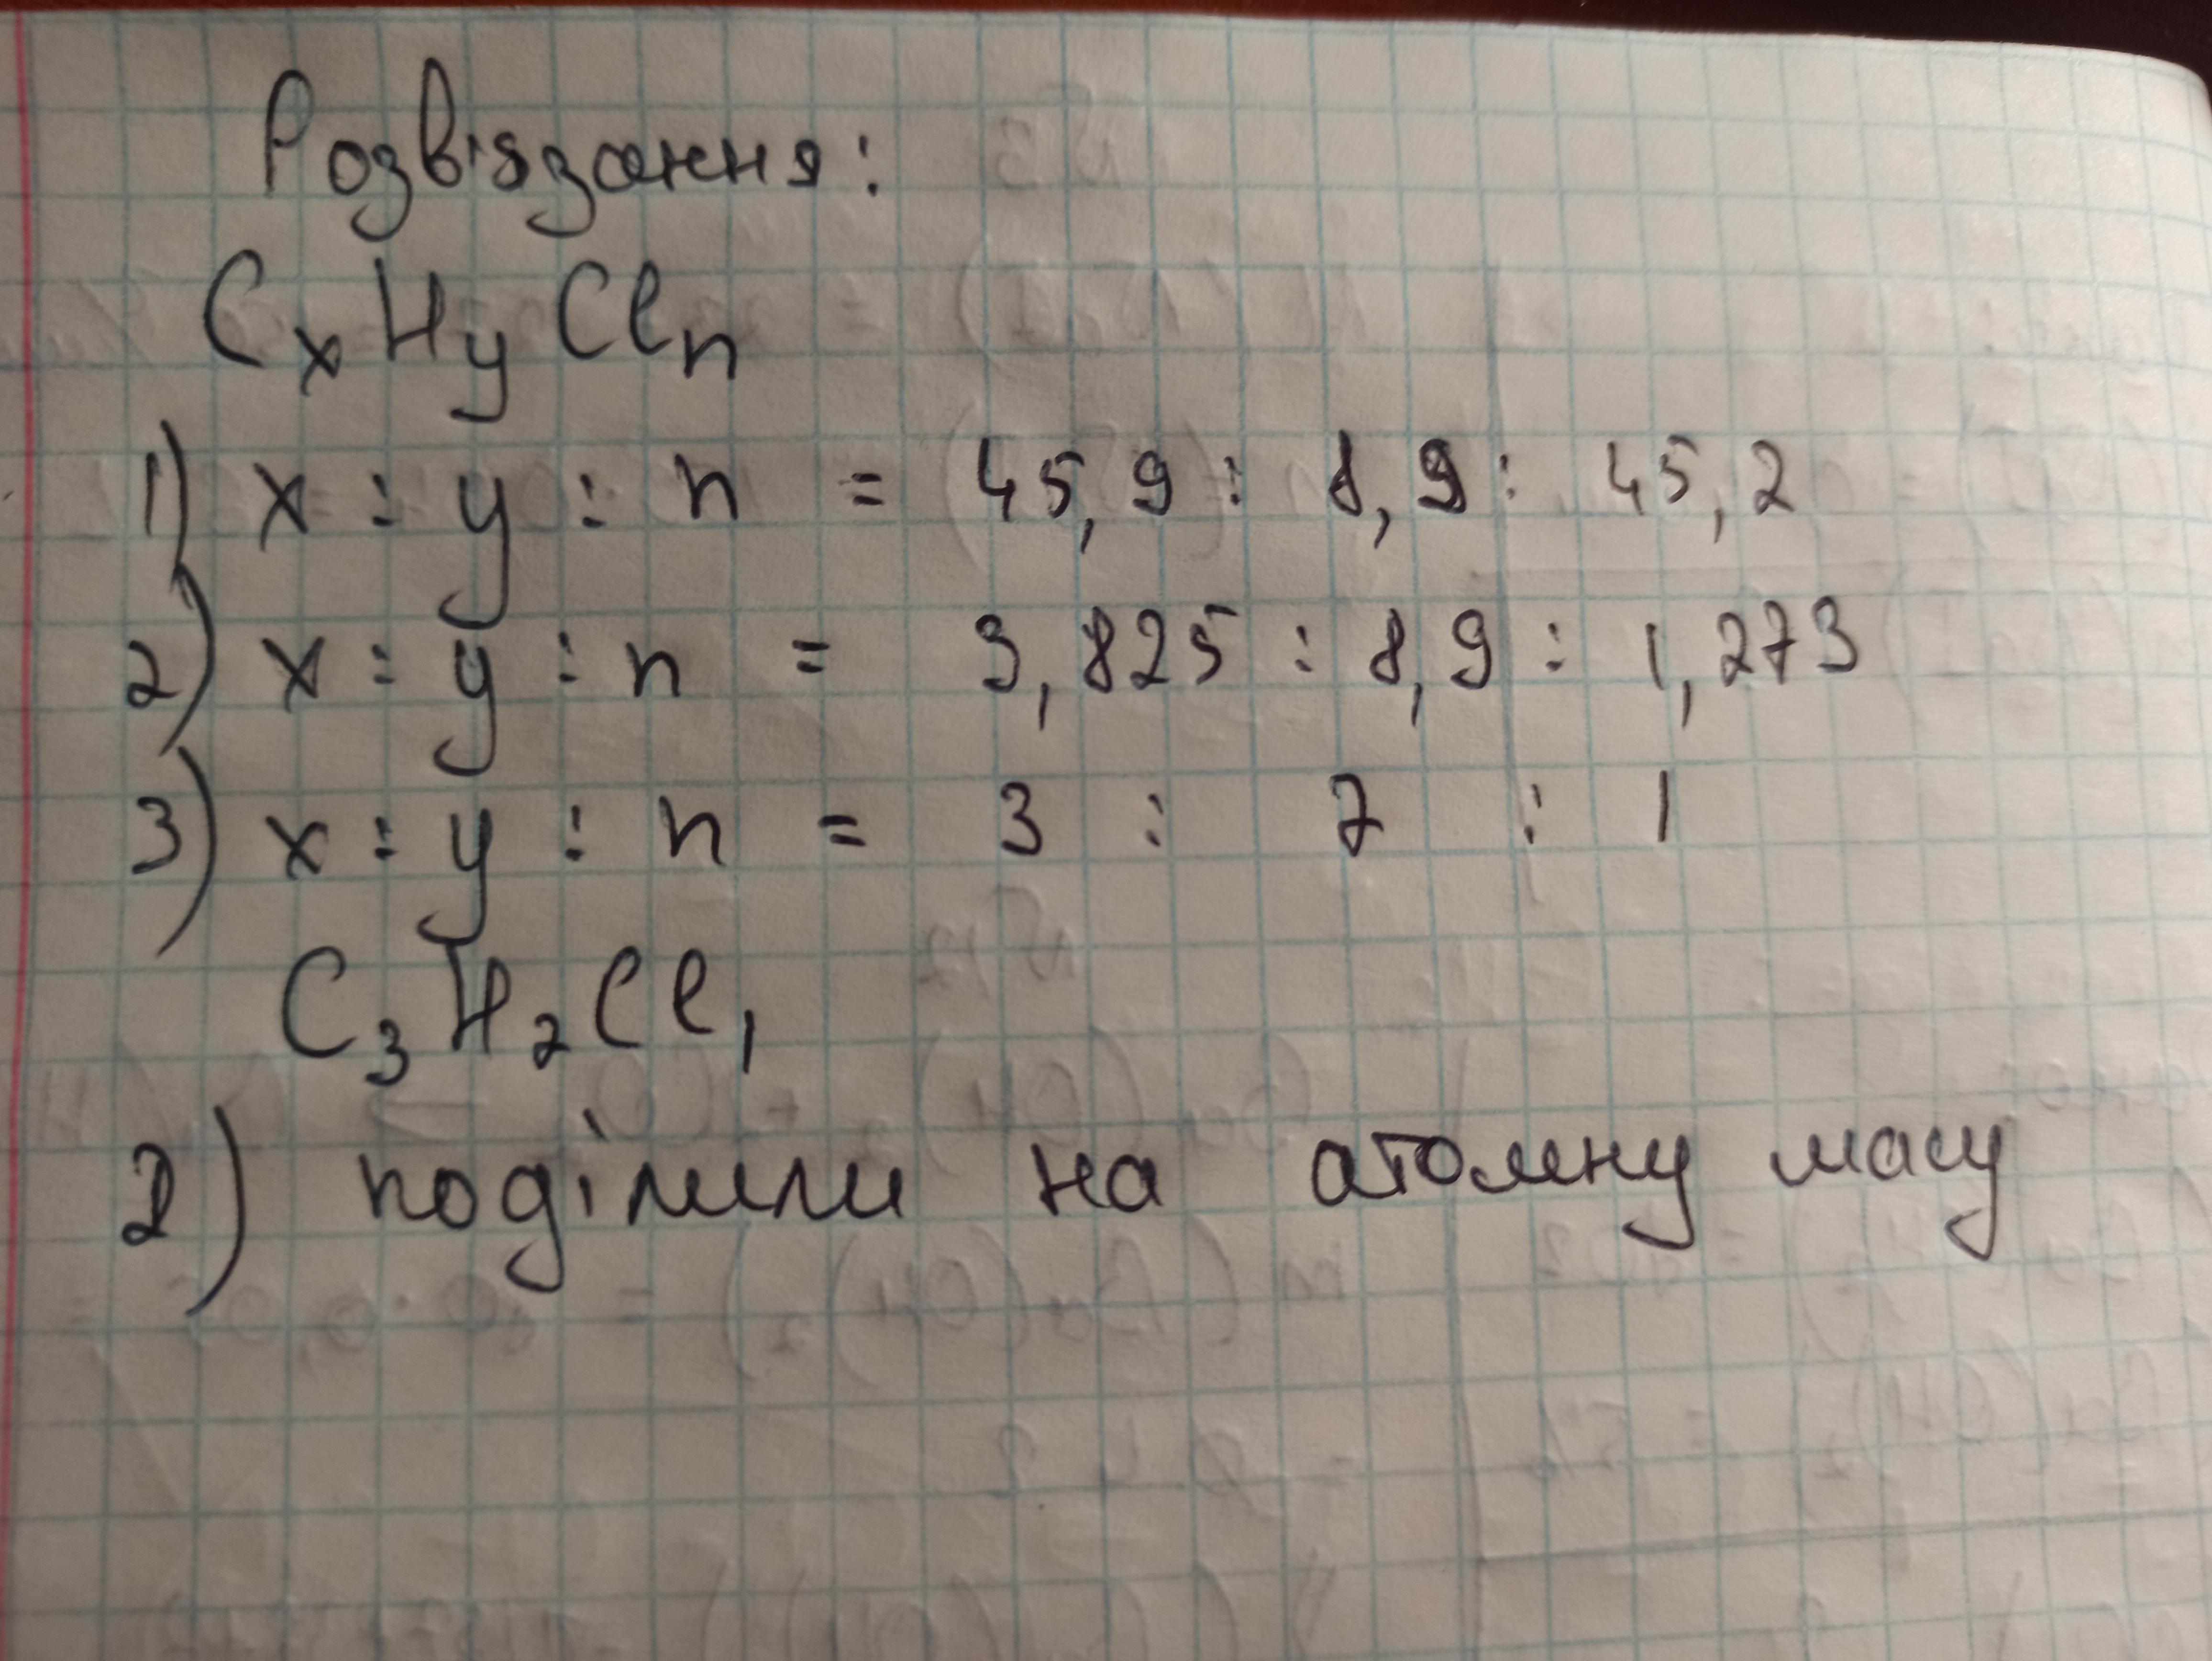 Розв'язання:
CxHyCln
1) x : y : n = 45,9 : 8,9 : 45,2
2) x : y : n = 3,825 : 8,9 : 1,273
3) x : y : n = 3 : 7 : 1
C3H7Cl1
2) поділили на атомну масу